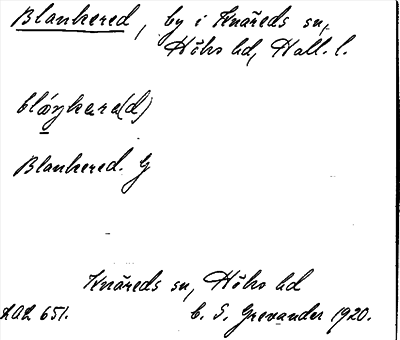 Blankered, by i Knäreds sn,
Höks hd, Hall. l.
blaŋkere(d)
Blankered. G
Knäreds sn, Höks hd
LAL 651. C. S. Grevander 1920.